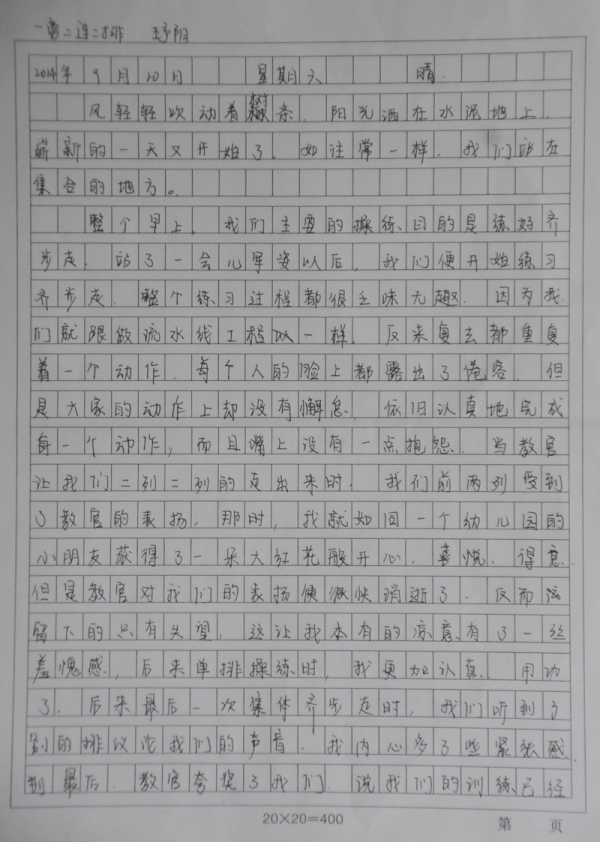 一营二连二排 王予阳
2014年9月20日 星期六 晴.
风轻轻吹动着树条,阳光洒在水泥地上,
崭新的一天又开始了。如往常一样,我们站在
集合的地方。
整个早上,我们主要的操练目的是练好齐
步走,站了一会儿军姿以后,我们便开始练习
齐步走.整个练习过程都很乏味无趣.因为我
们就跟做流水线工程似一样.反来复去都重复
着一个动作.每个人的脸上都露出了倦容.但
是大家的动作上却没有懈怠,依旧认真地完成
每一个动作,而且嘴上没有一点抱怨.当教官
让我们二列二列的走出来时.我们前两列受到
了教官的表扬.那时,我就如同一个幼儿园的
小朋友获得了一朵大红花般开心.喜悦.得意.
但是教官对我们的表扬便很快消逝了.反而
留下的只有失望,这让我本有的意有了一丝
羞愧感,后来单排操练时,我更加认真.用功
了.后来最后一次集体齐步走时,我们听到了
别的排议论我们的声音.我内心多了些紧张感.
到最后.教官夸奖了我们.说我们的训练已经
20×20=400
第 页